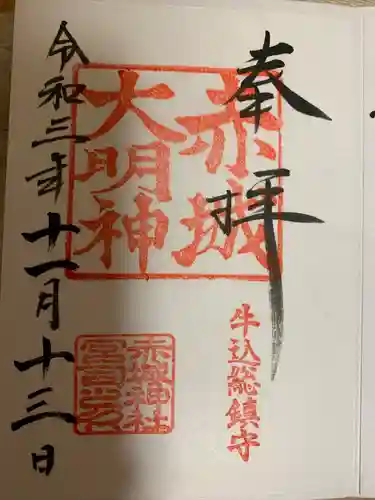 奉拝
赤城
大明神
牛込総鎮守
赤城神社
宮司之印
令和三年十一月十三日